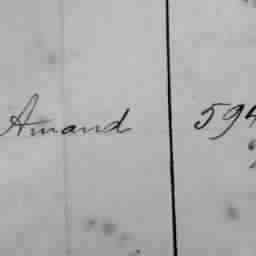 Amand 594